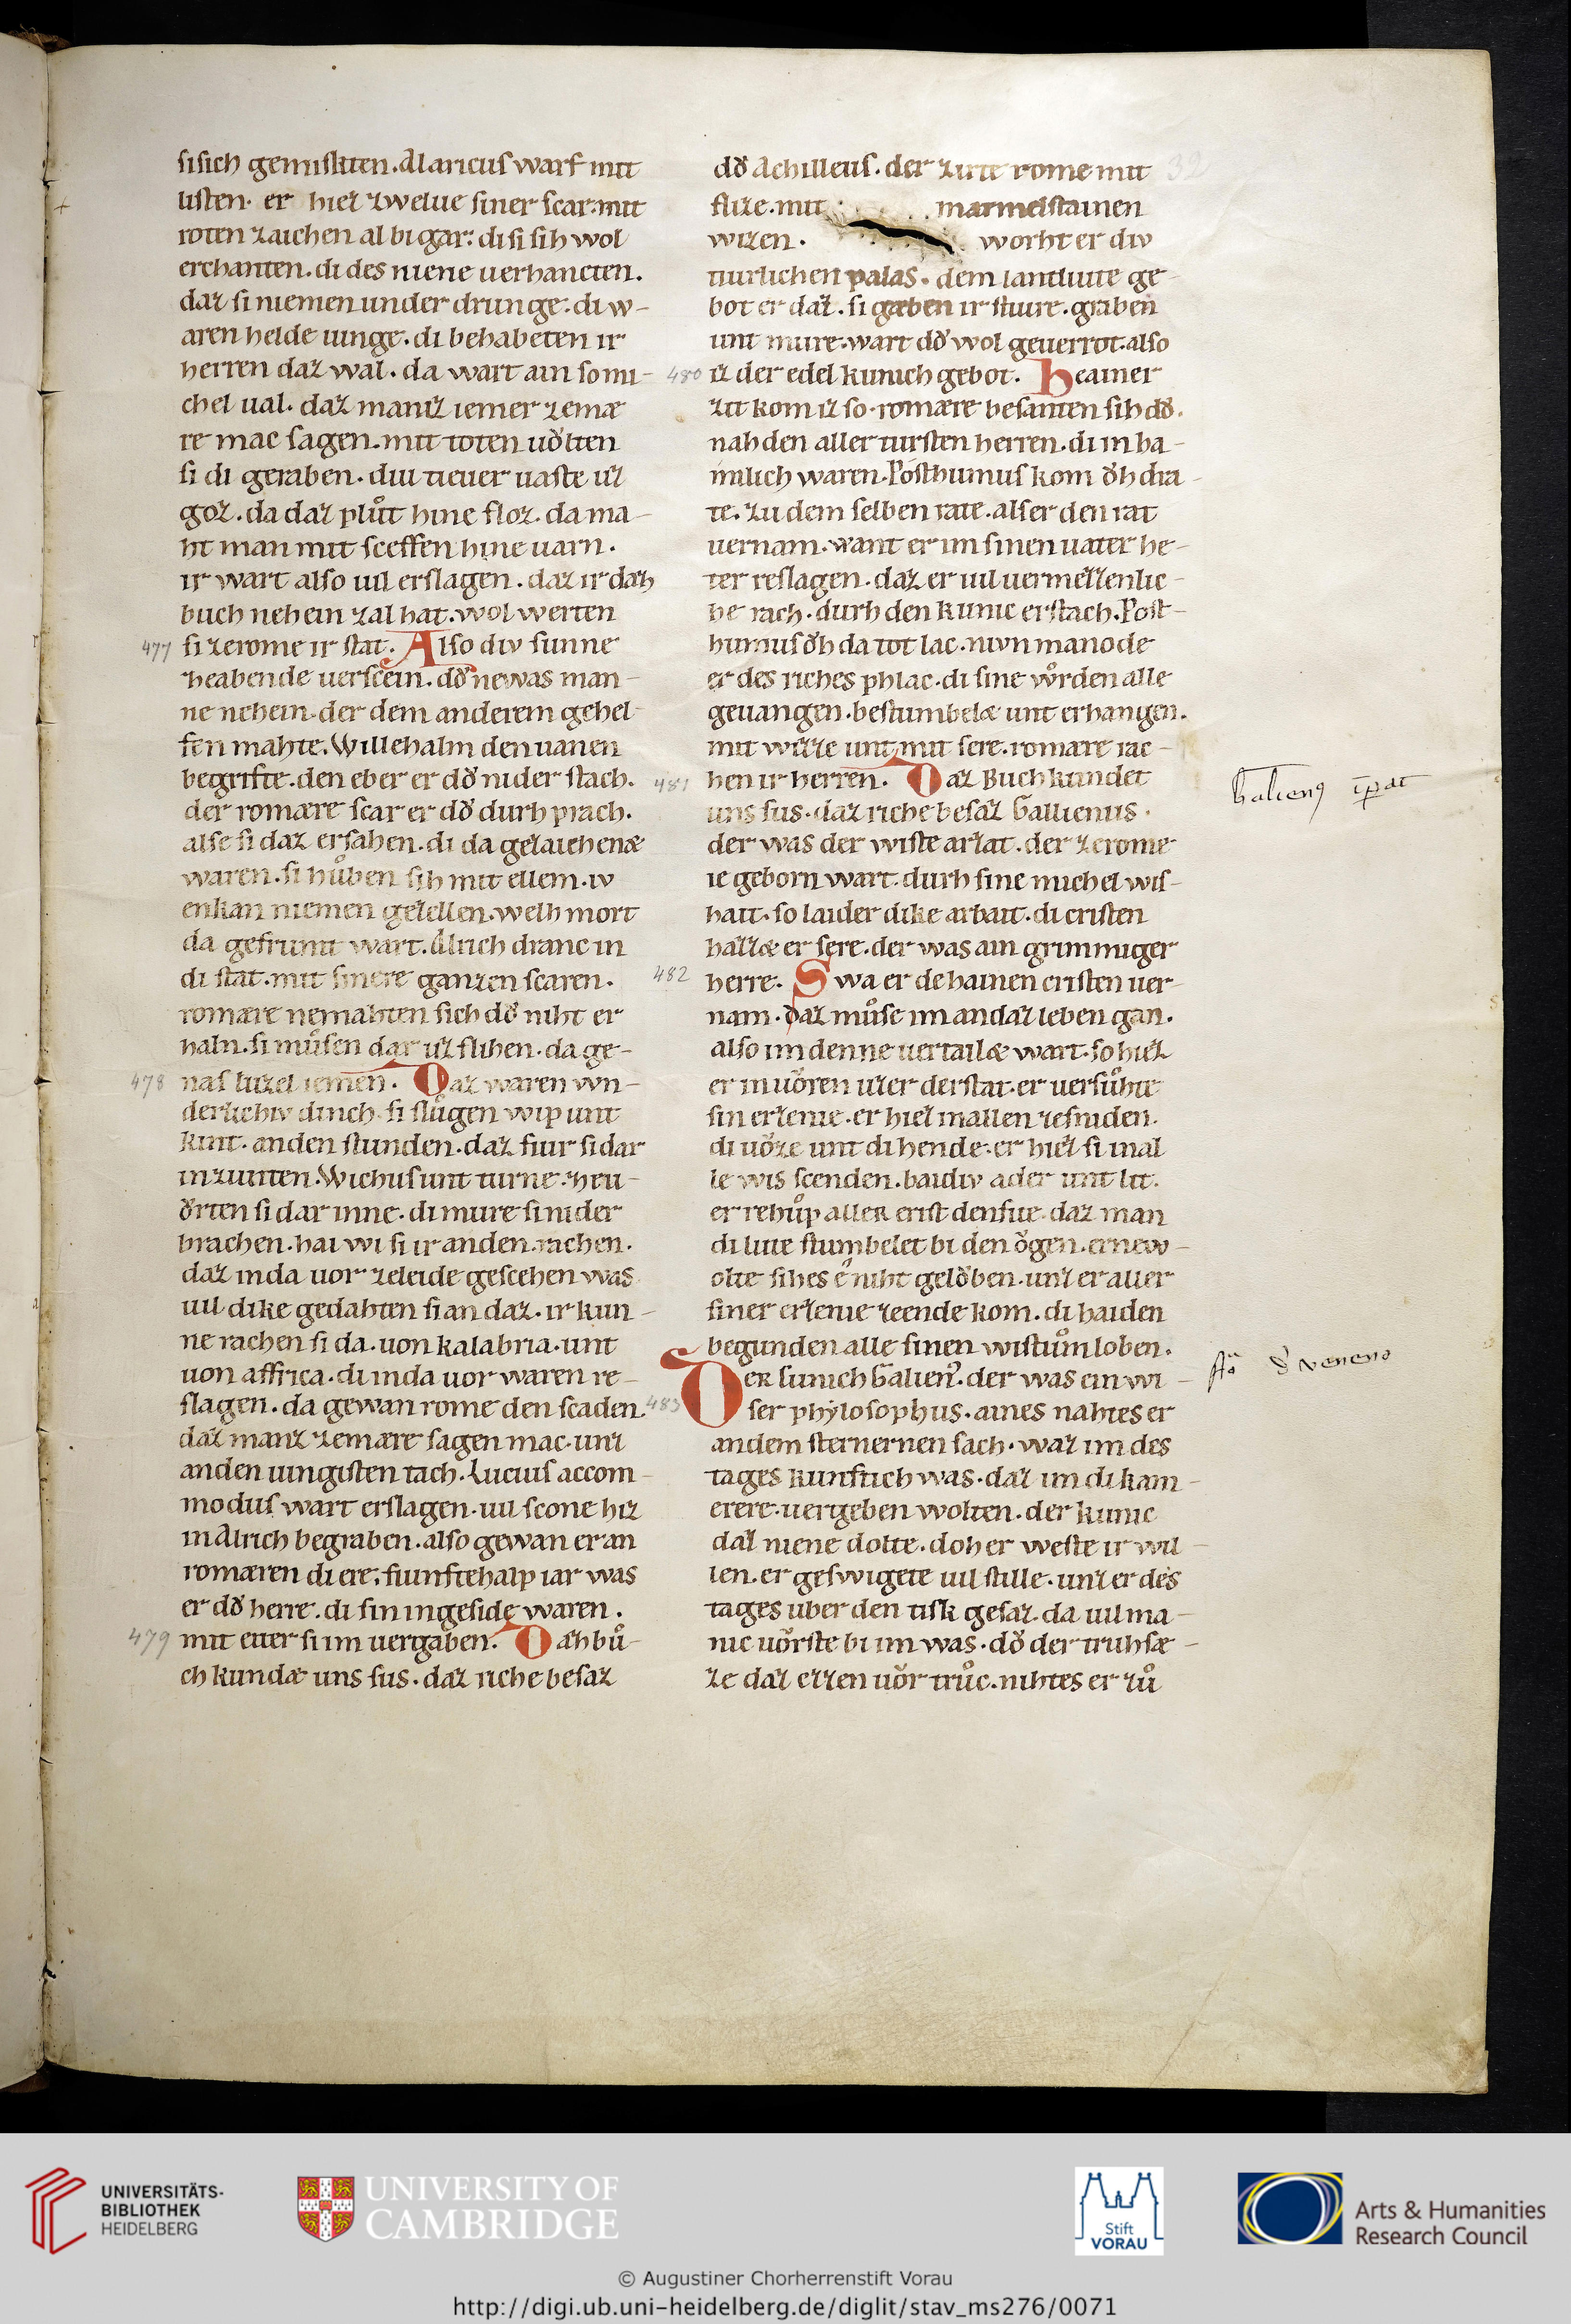 ſiſich gemiſkten. Alaricuſ warf mit
liſten. er hiez zwelue ſiner ſcar. mit
roten zaichen al bigar. di ſi ſih wol
erchanten. di des niene uerhancten.
daz ſi niemen under drunge. di w-
aren helde iunge. di behabeten ir
herren daz wal. da wart ain ſo mi-
chel ual. daz maniz iemer zemæ
re mac ſagen. mit toten uͦlten
ſi di graben. diu tieuer uaſte uz
goz. da daz plůt hine floz. da ma-
ht man mit ſceffen hine uarn.
ir wart alſo uil erſlagen. daz ir daz
buch nehein zal hat. wol werten
477 ſi zerome ir ſtat. Alſo div ſunne
zheabende uerſcein. dǒ newas man-
ne nehein. der dem anderem gehel-
fen mahte. Willehalm den uanen
begrifte. den eber er dǒ nider ſtach.
der romære ſcar er dǒ durh prach.
alſe ſi daz erſahen. di da gezaichenæ
waren. ſi hůben ſih mit ellem. iv
enkan niemen gezellen. welh mort
da gefrumt wart. Alrich dranc in
di ſtat. mit ſinere ganzen ſcaren.
romære nemahten ſich dǒ niht er
haln. ſi můſen dar uz flihen. da ge-
478 naſ luzel iemen. Daz waren wn-
derlichiv dinch. ſi ſlůgen wip unt
kint. an den ſtunden. daz fiur ſi dar
in zunten. Wichuſ unt turne. zheu-
ǒrten ſi dar inne. di mure ſi nider
brachen. hai wi ſi ir anden rachen.
daz in da uor zeleide geſcehen was
uil dike gedahten ſi an daz. ir kun-
ne rachen ſi da. uon kalabria. unt
uon affrica. di in da uor waren re-
ſlagen. da gewan rome den ſcaden.
daz manz zemære ſagen mac. unz
an den iungiſten tach. Luciuſ accom-
moduſ wart erſlagen. uil ſcone hiz
in Alrich begraben. alſo gewan er an
romæren di ere. fiunftehalp iar was
er dǒ herre. di ſin ingeſide waren.
479 mit eiter ſi im uergaben. Dazh bů-
ch kundæ uns ſus. daz riche beſaz
32
dǒ Achilleuſ. der zirte rome mit
flize. mit marmelſtainen
wizen. worht er div
tiurlichen palas. dem lantliute ge-
bot er daz. ſi gæben ir ſtiure. graben
unt mure. wart dǒ wol geuerrot. alſo
480 iz der edel kunich gebot. Zheainer
zit kom iz ſo. romære beſanten ſih dǒ.
nah den aller turſten herren. di in ha-
imlich waren. Poſthumuſ kom ǒh dra-
te. zu dem ſelben rate. alſer den rat
uernam. want er im ſinen uater he-
ter reſlagen. daz er uil uermezzenlic-
he rach. durh den kunic er ſtach. Poſt-
humuſ ǒh da tot lac. niwn manode
er des riches phlac. di ſine wͦrden alle
geuangen. beſtumbelæ unt erhangen.
mit wizze unt mit ſere. romære rac-
481 hen ir herren. Daz Buch kundet
uns ſus. daz riche beſaz Gallienus.
der was der wiſte arzat. der zerome
ie geborn wart. durh ſine michel wiſ-
hait. ſo laider dike arbait. di criſten
hazzæ er ſere. der was ain grimmiger
482 herre. Swa er dehainen criſten uer-
nam. daz můſe im an daz leben gan.
alſo im denne uertailæ wart. ſo hiez
er in uǒren uzer der ſtat. er uerſůhte
ſin erzenie. er hiez in allen zeſniden.
di uǒze unt di hende. er hiez ſi in al
le wis ſcenden. baidiv ader unt lit.
er rehůp aller eriſt den ſite. daz man
di lute ſtumbelet bi den ǒgen. er new-
olte ſihes e niht gelǒben. unz er aller
ſiner erzenie zeende kom. di haiden
begunden alle ſinen wiſtům loben.
483 Der kunich Galien⁹. der was ein wi-
ſer phyloſophus. aines nahtes er
an dem ſternernen ſach. waz im des
tages kunftich was. daz im di kam-
erere. uergeben wolten. der kunic
daz niene dolte. doh er weſte ir wil-
len. er geſwigete uil ſtille. unz er des
tages uber den tiſk geſaz. da uil ma-
nic uǒrſte bi im was. dǒ der truhſæ-
ze daz ezzen uǒr trůc. nihtes er zů
Galieng īpat
ſtā ď veneno
UNIVERSITÄTS-
BIBLIOTHEK
HEIDELBERG
UNIVERSITY OF
CAMBRIDGE
Stift
VORAU
Arts & Humanities
Research Council
© Augustiner Chorherrenstift Vorau
http://digi.ub.uni-heidelberg.de/diglit/stav_ms276/0071